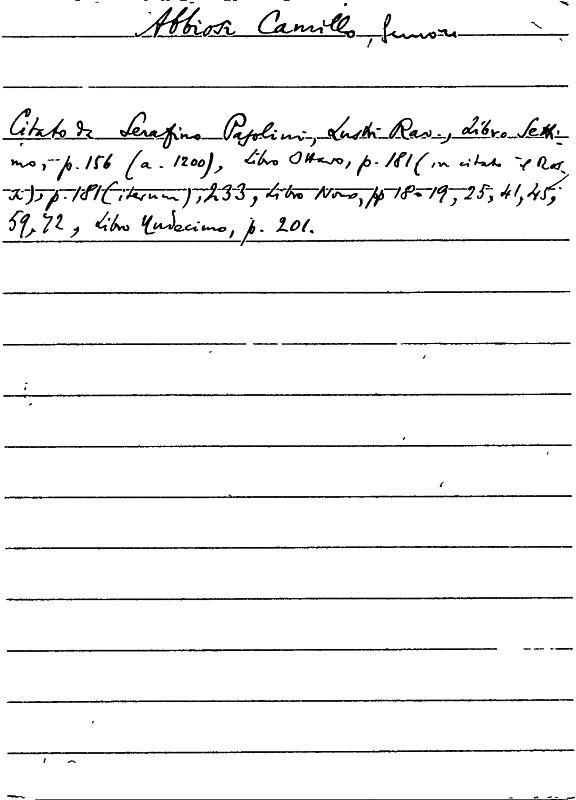 Abbiosi Camillo, Senior
Citato da Serafino Pasolini, Lustri Rav., Libro Setti-
mo, p. 156 (a. 1200), Libro Ottavo, p. 181 (in citato il Ros,
si), p. 181 (iterum), 233, Libro Nono, pp 18-19, 25, 41, 45,
59, 72, Libro Undecimo, p. 201.